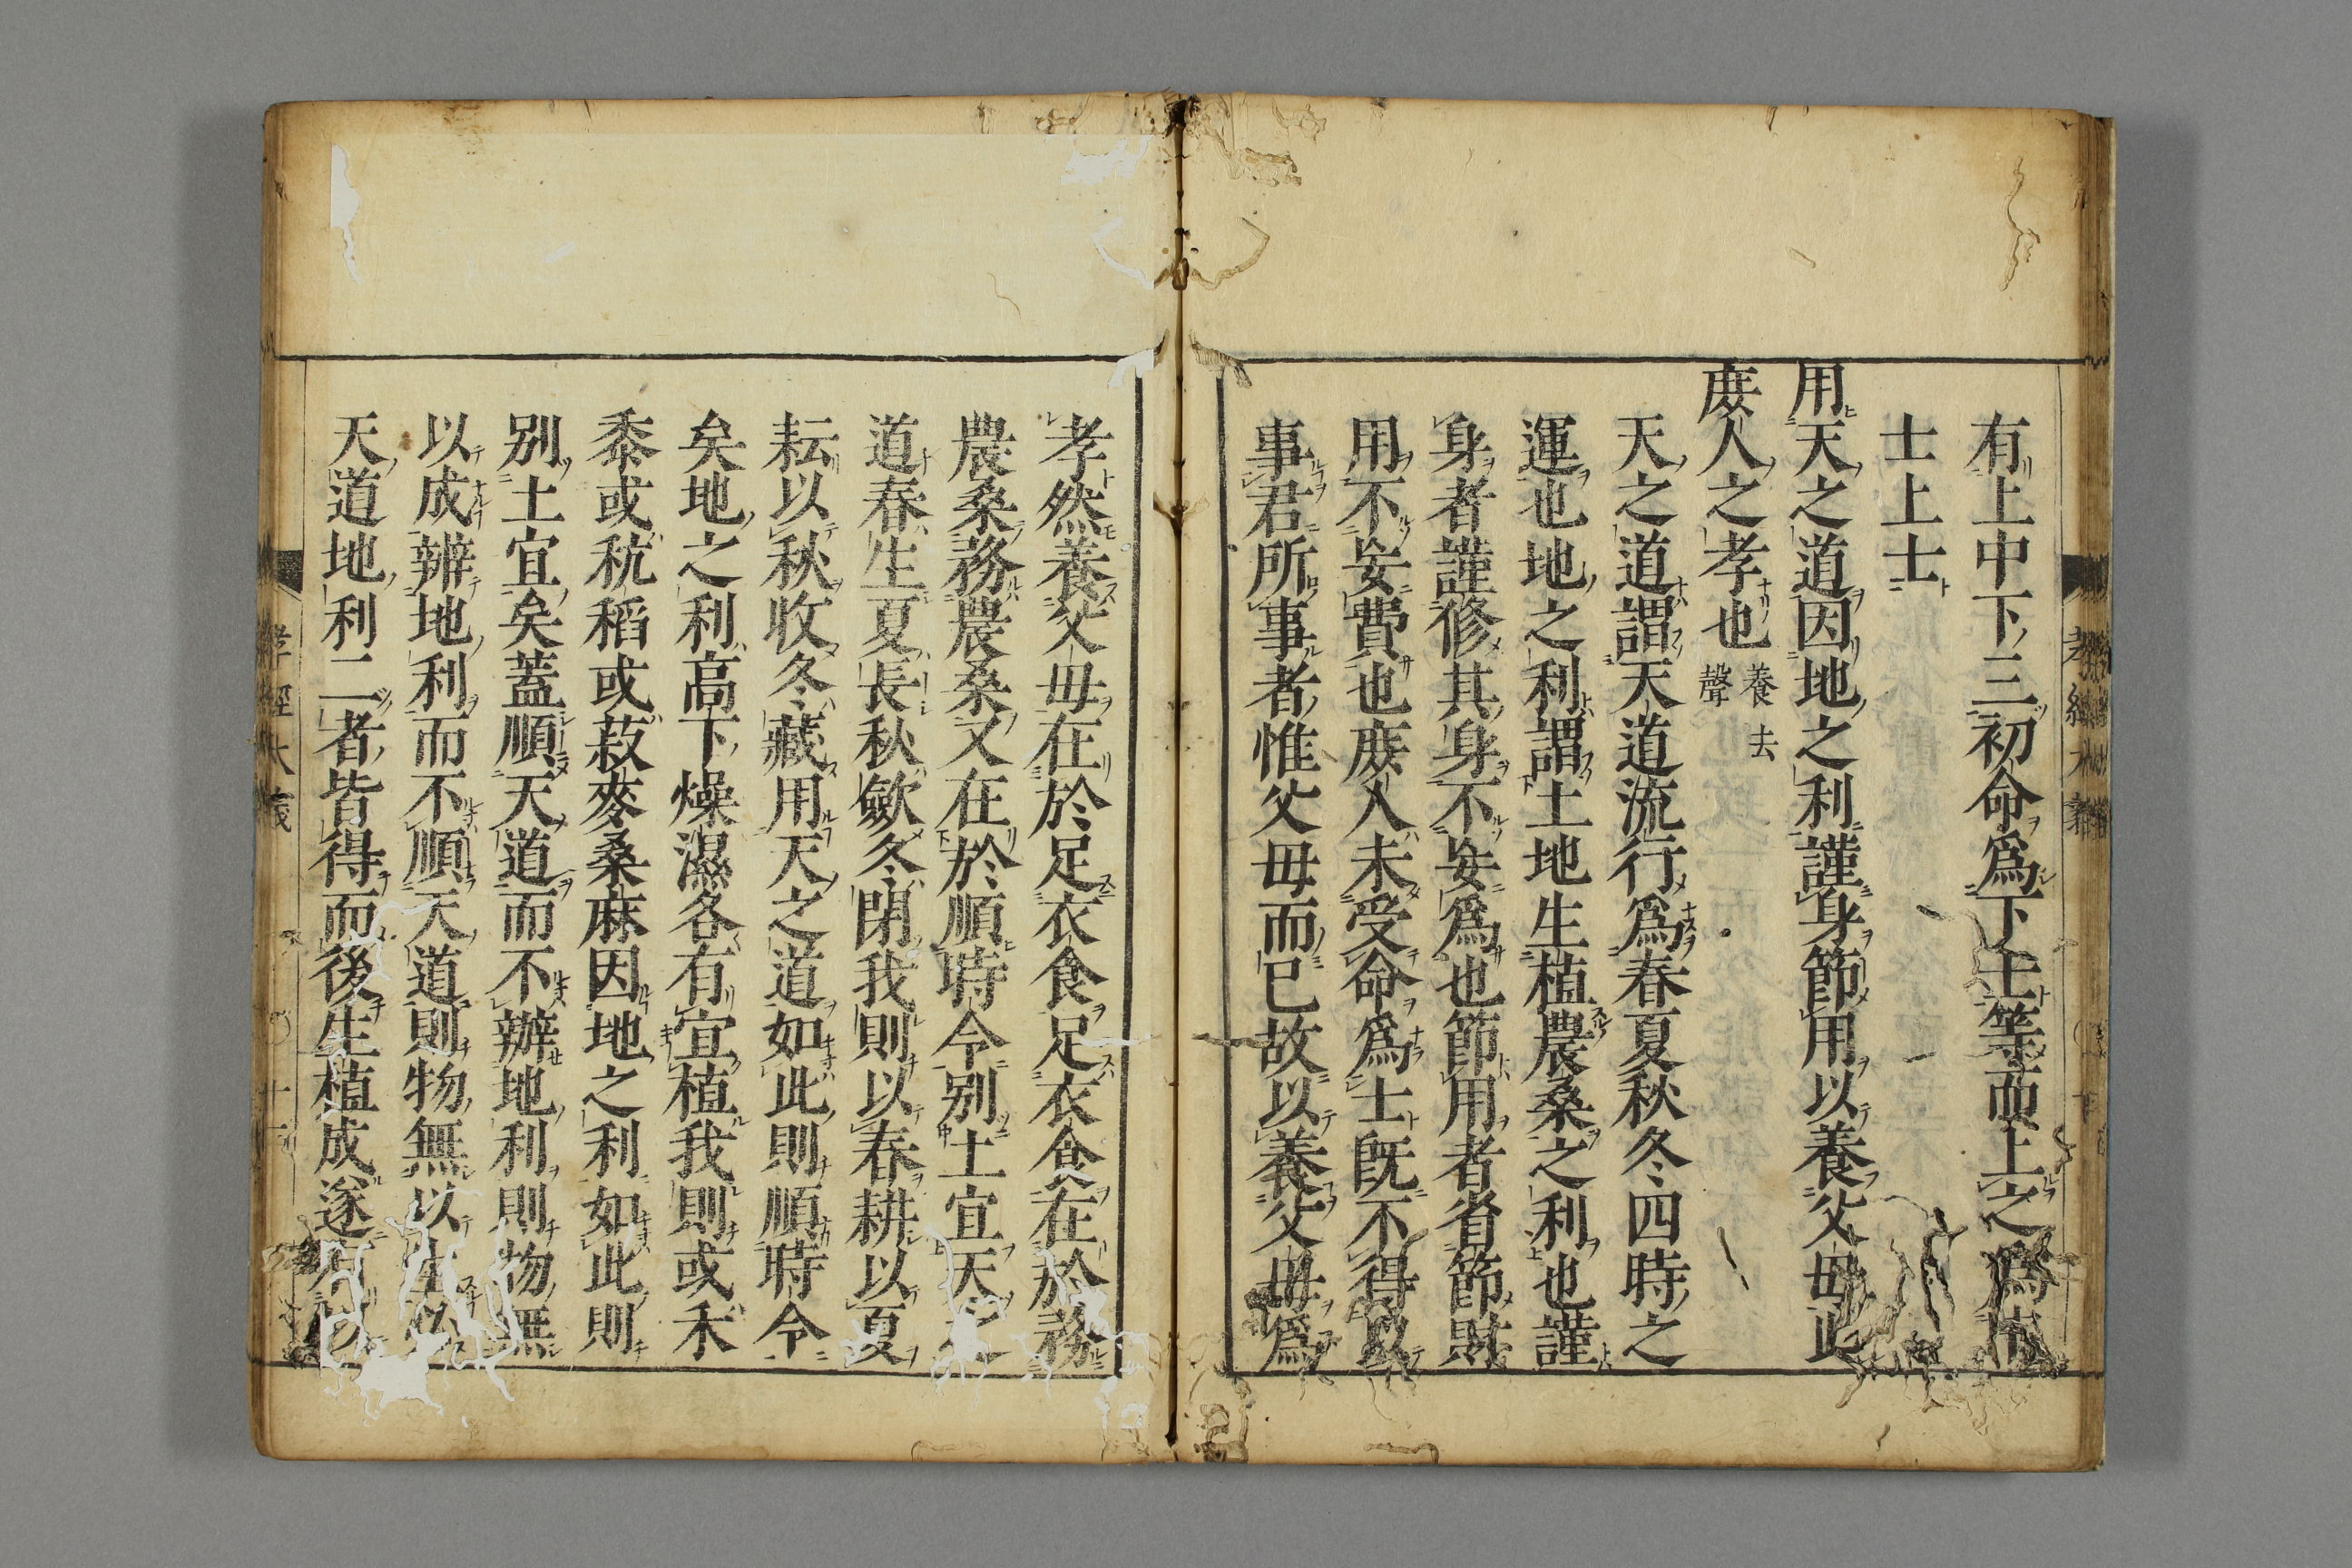 有上中下三初命爲下士等而上之爲
士上士
用天之道因地之利謹身節用以養父母此
庶人之孝也養去聲
天之道謂天道流行爲春夏秋冬四時之
運也地之利謂土地生植農桑之利也謹
身者謹修其身不妄爲也節用者省節財
用不妄費也庶人未受命爲士旣不得以
事君所事者惟父母而已故以養父母爲
孝然養父母在於足衣食足衣食在於務
農桑務農桑又在於順時令別土宜天之
道春生夏長秋斂冬閉我則以春耕以夏
耘以秋收冬藏用天之道如此則順時令
矣地之利高下燥濕各有宜植我則或禾
黍或秔稻或菽麥桑麻因地之利如此則
別土宜矣蓋順天道而不辨地利則物無
以成辨地利而不順天道則物無以生
天道地利二者皆得而後生植成遂
孝經大義